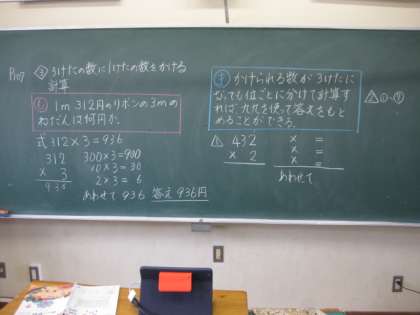 P107
③ 3けたの数に1けたの数をかける
計算
も 1m 312円のリボンの3mの
ねだんは何円か。
式 312×3=936
312
× 3
936
300×3=900
10×3=30
2×3= 6
あわせて 936
答え 936円
かけられる数が3けたに
なっても位ごとに分けて計算す
れば、九九を使って答えをもと
めることができる。
432
× 2
× =
× =
× =
あわせて